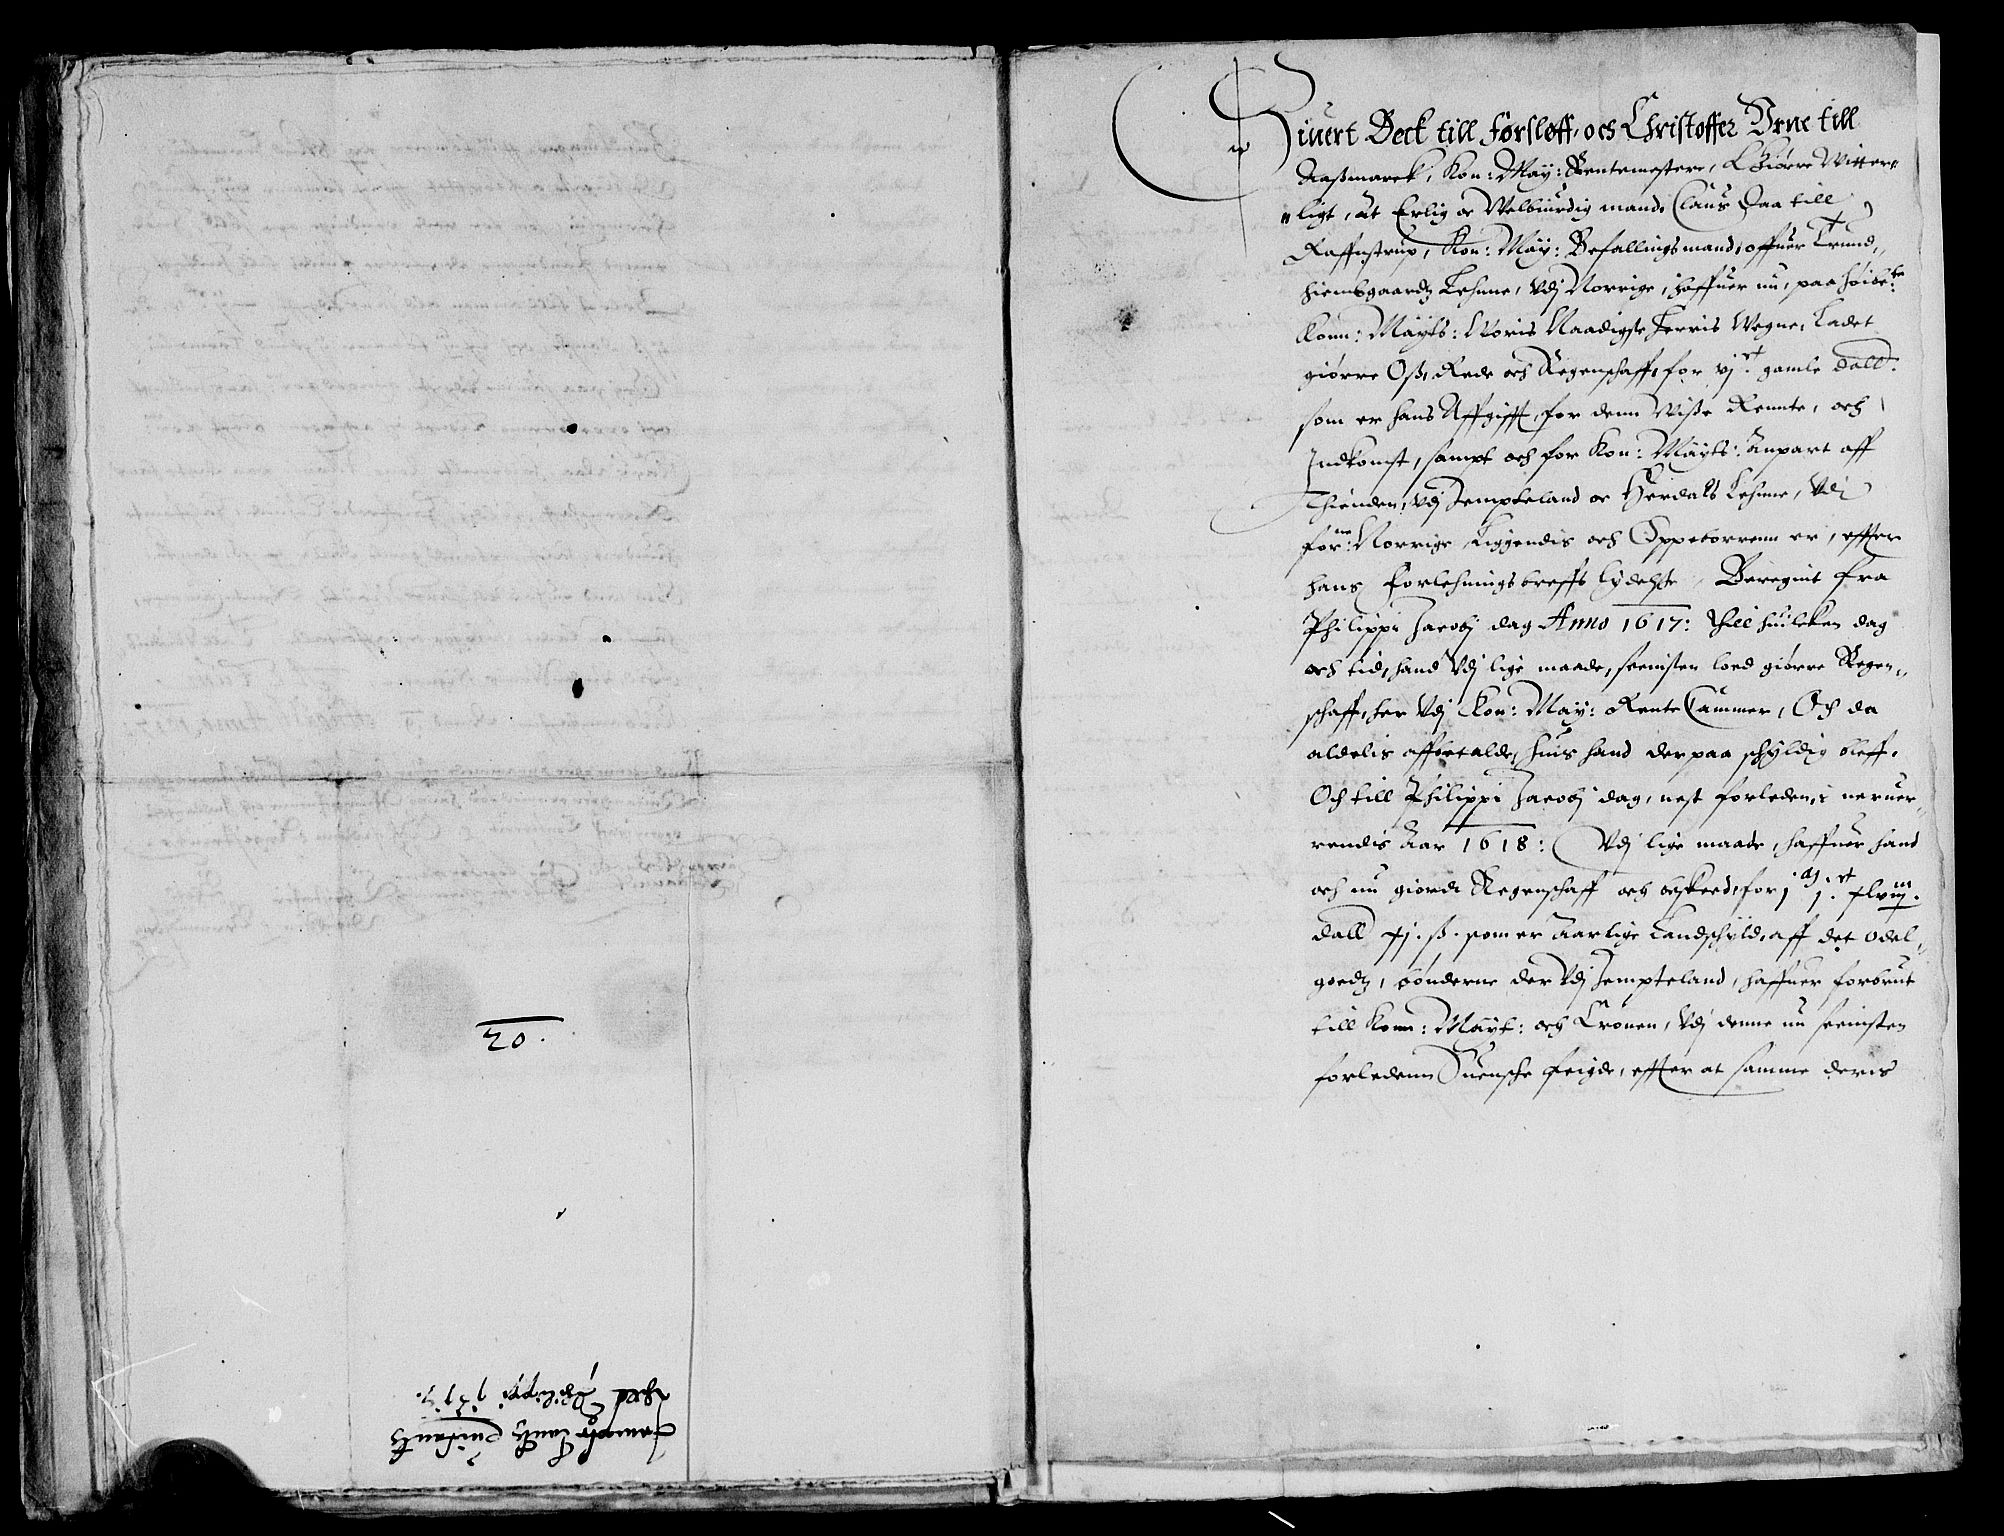 20.
Jempte landtz quitants
Aared Philippi 1617.
Siuert Beck till Førsløff, och Christoffer Vrne till
Aaßmarck, Kon: May: Rentemestere, Giørre Witter„
„ligt, at Erlig oc Welbiurdig mand, Claus Daa till
Raffnstrup, Kon: May: Befallingsmand, offuer Trund„
hiembgaardtz Lehnne, Vdj Norrige, haffuer nu, paa høibe:te
Konn: Maytts: Woris Naadigste Herris Wegne, Ladet
giørre Oß, Rede och Regenschaff, for vj.ct gamle dall:
som er hans Affgifft, for denn Wiße Rennte, och
Jndkomst, sampt och for Kon: Maytts: Anpart aff
Thienden, Vdj Jempteland oc Herdals Lehnne, Vdj
for:ne Norrige Liggendis och Oppeborrenn er, effter
hans Forlehningsbreffs lydelsze, Beregnit fra
Philippi Jacobj dag Anno 1617: Till huilcken dag
och tid, hand Vdj lige maade, seenisten loed giørre Regen„
schaff, her Vdj Kon: May: RenteCammer, Och da
aldelis affbetalde, huis hand derpaa schyldig bleff.
Och till Philippi Jacobj dag, nest forleden, i neruer„
rendis Aar 1618: Vdj lige maade, haffuer hand
och nu giordt Regenschaff och beskeed, for j.M j.ct xlviij.
dall xj. ß. som er Aarlige Landschyld, aff det odel„
goedtz, bønderne der Vdj Jempteland, haffuer forbrut
till Konn: Maytt: och Cronen, Vdj denne nu seenisten
forledenn Suensche feigde, effter at samme deris